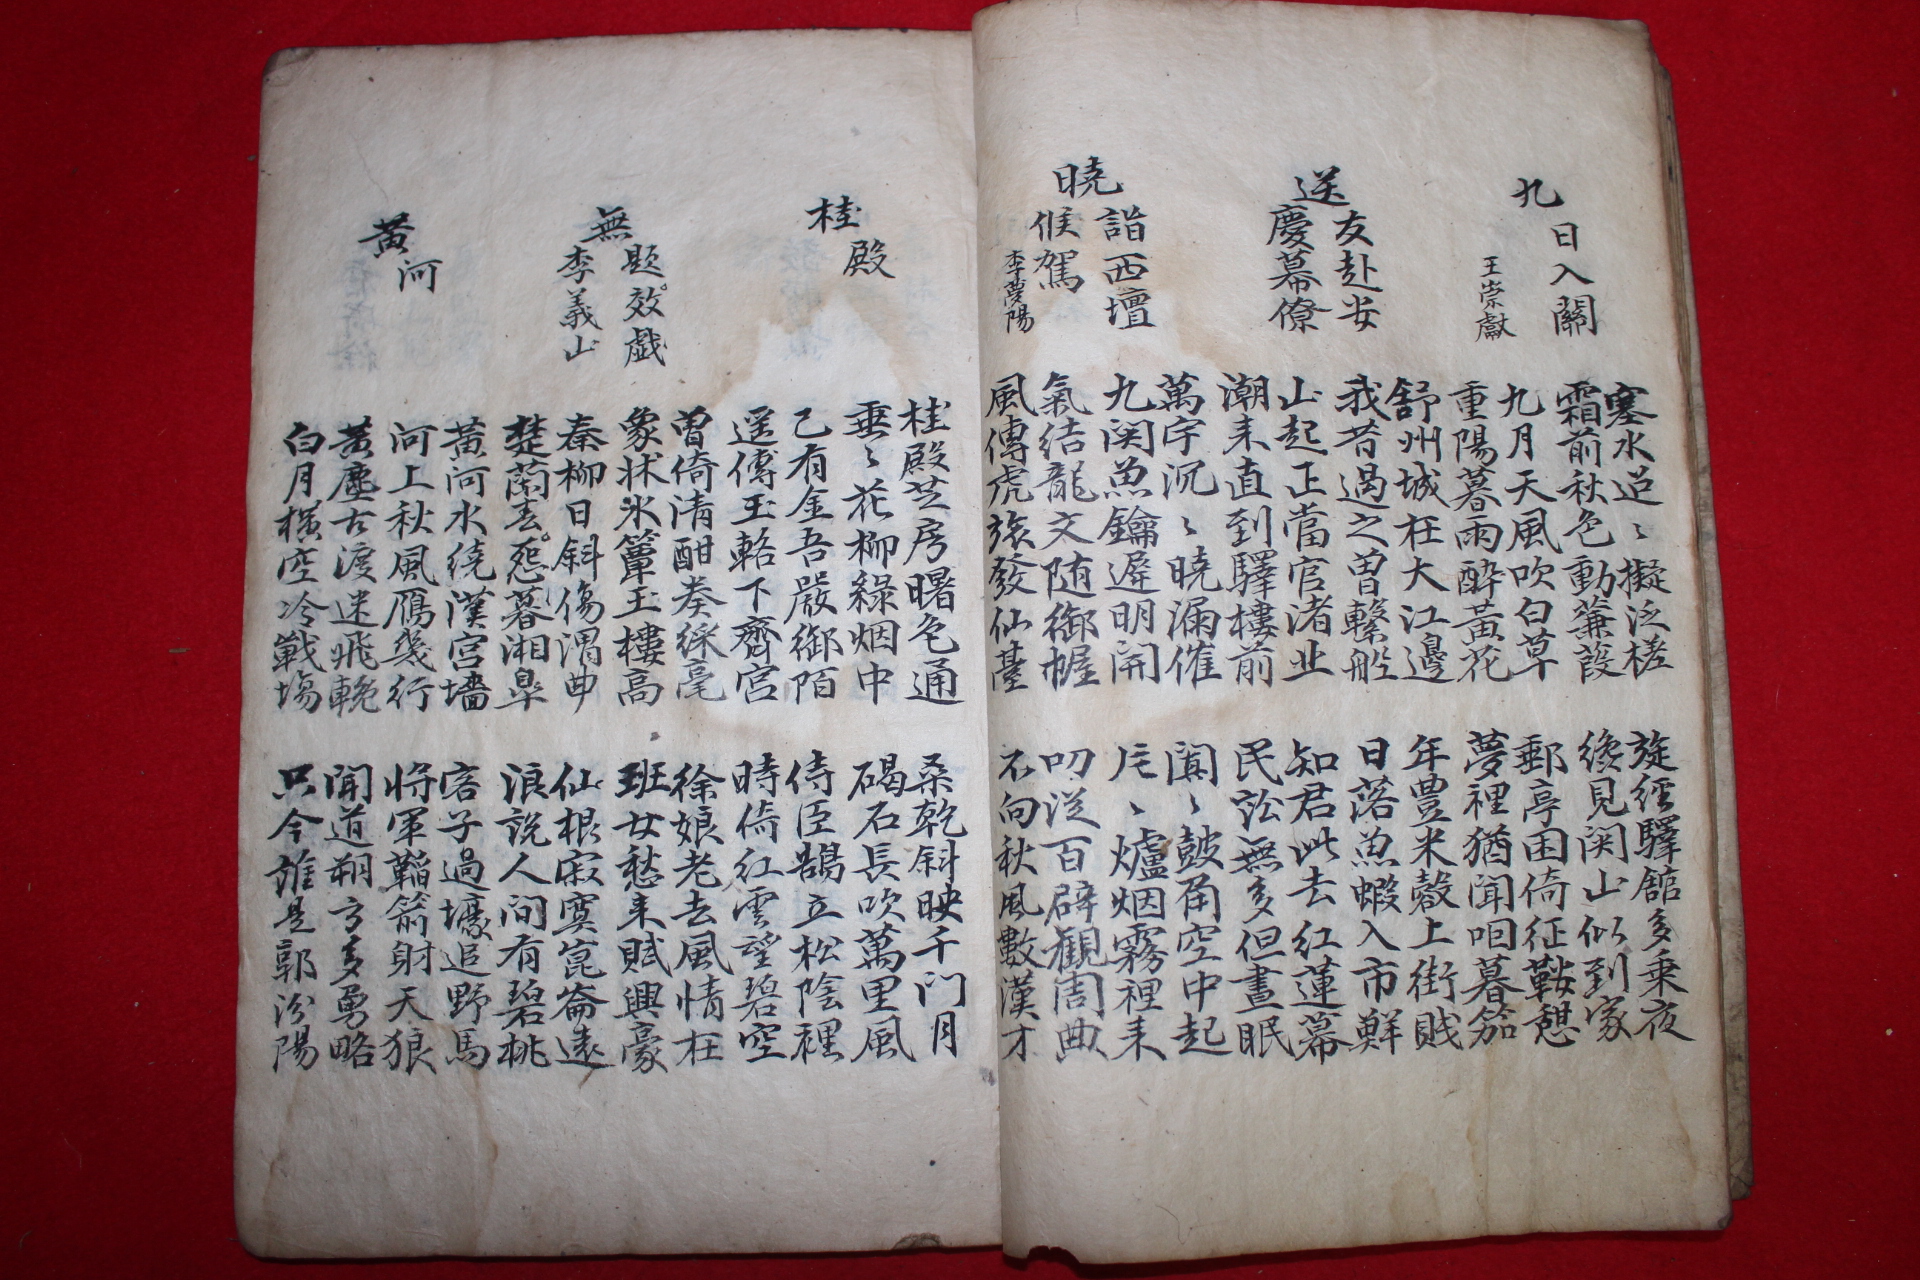 九日入關
王崇獻
塞水迢〻擬泛槎
霜前秋色動蒹葭
旋經驛館多乘夜
纔見関山似到家
九月天風吹白草
重陽暮雨醉黃花
郵亭困倚征鞍憩
夢裡猶聞咱暮笳
送友赴安慶幕僚
舒州城枉大江邊
我昔過之曾繫船
年豊米糓上街賎
日落魚蝦入市鮮
山起正當官渚北
潮来直到驛樓前
知君此去紅蓮幕
民訟無多但晝眠
曉詣西壇候駕
李夢陽
萬宇沉〻曉漏催
九関魚鑰遲明開
闐〻皷角空中起
片〻爐烟霧裡来
氣結龍文随御幄
風傳虎旅發仙臺
叨從百辟觀周典
不向秋風數漢才
桂殿
桂殿芝房曙色通
垂〻花柳綠烟中
桑乾斜映千門月
碣石長吹萬里風
已有金吾嚴御陌
遥傳玉輅下齋宮
侍臣鵠立松陰裡
時倚紅雲望碧空
無題效戱李義山
曾倚清酣奏綵毫
象牀氷簟玉樓高
徐娘老去風情枉
班女愁来賦興豪
秦柳日斜傷渭曲
楚蘭春怨暮湘皐
仙根寂寞崑崙遠
浪說人间有碧桃
黃河
黃河水繞漢宮墻
河上秋風鴈幾行
客子過壕追野馬
将軍韜箭射天狼
黃塵古渡迷飛輓
白月橫空冷戰塲
聞道朔方多勇略
只今誰是郭汾陽